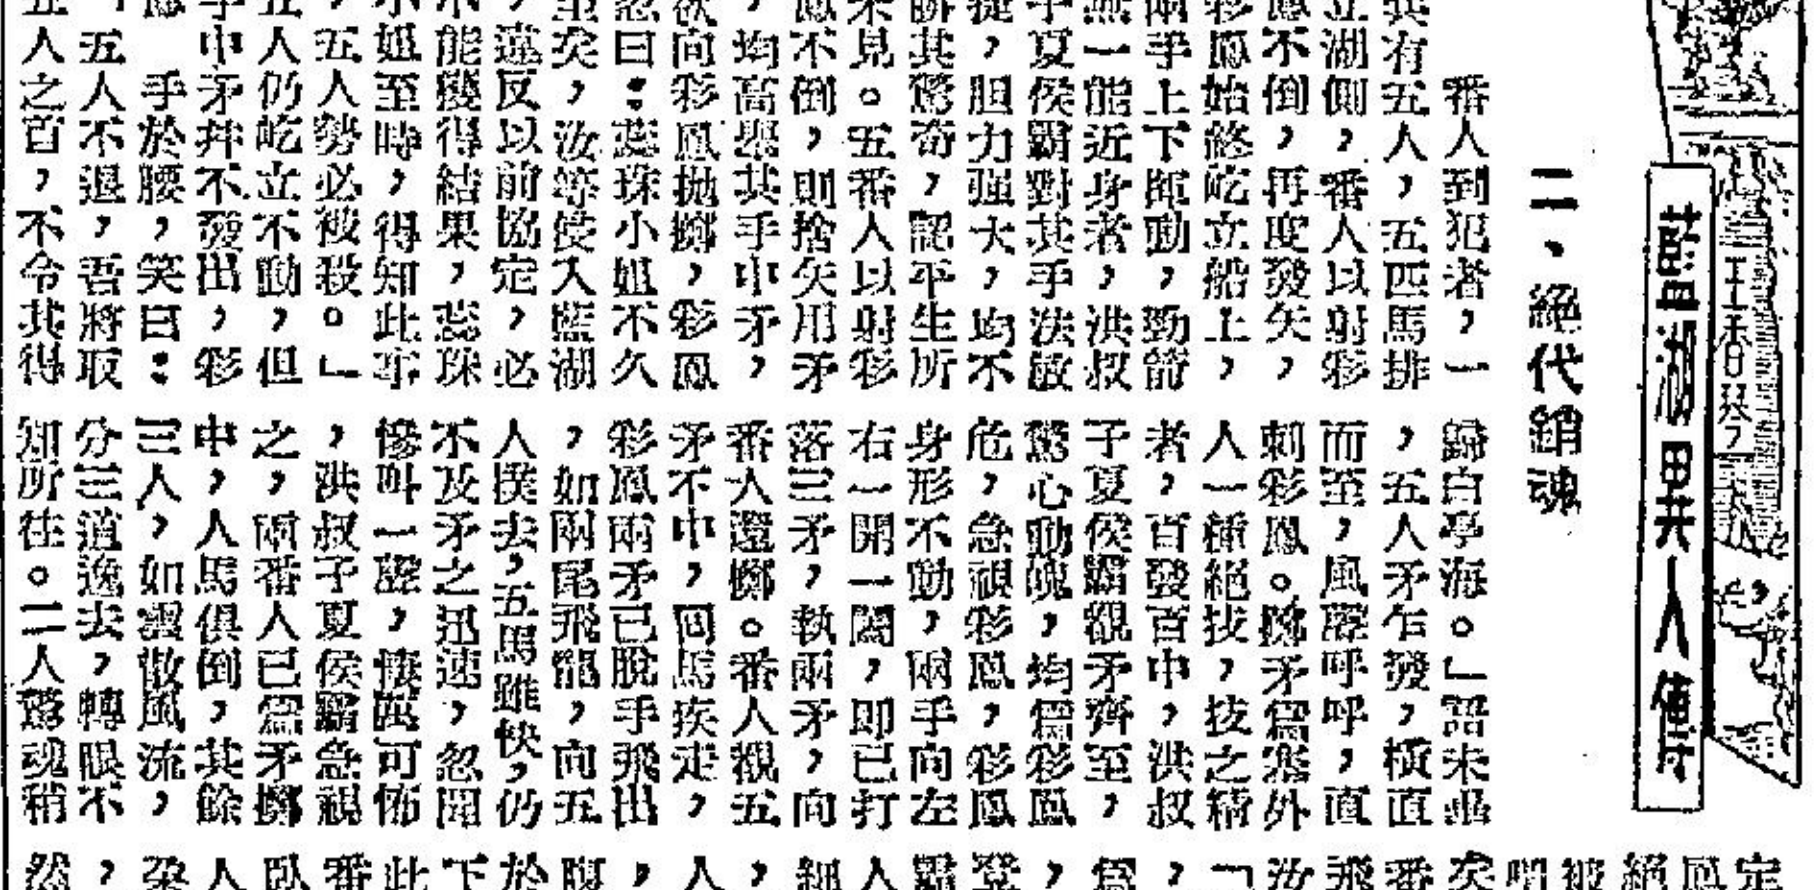 藍湖異人傳
王香琴
二、絕代銷魂
番人到犯者,一
共有五人,五匹馬排
立湖側,番人以射彩
鳳不倒,再度發矢,
彩鳳始終屹立船上,
兩手上下揮動,勁箭
無一能近身者,洪叔
子夏侯霸對其手法敏
捷,胆力强大,均不
勝其驚奇,認平生所
未見。五番人以射彩
鳳不倒,則捨矢用矛
,均高舉其手中矛,
欲向彩鳳拋擲,彩鳳
忽曰:蕊珠小姐不久
至矣,汝等侵入藍湖
,違反以前協定,必
不能獲得結果,蕊珠
小姐至時,得知此事
,五人勢必被殺。」
五人仍屹立不動,但
手中矛并不發出,彩
手於腰,笑曰:
「五人不退,吾將取
五人之首,不令其得
歸白亭海。」語未畢
,五人矛乍發,橫直
而至,風聲呼呼,直
刺彩鳳。擲矛為塞外
人一種絕技,技之精
者,百發百中,洪叔
子夏侯霸覩矛齊至,
驚心動魄,均為彩鳳
危,急視彩鳳,彩鳳
身形不動,兩手向左
右一開一闔,即已打
落三矛,執兩矛,向
番人還擲。番人覩五
矛不中,囘馬疾走,
彩鳳兩矛已脫手飛出
,如兩尾飛龍,向五
人撲去,五馬雖快,仍
不及矛之迅速,忽聞
慘叫一聲,悽厲可怖
,洪叔子夏侯霸急視
之,兩番人已為矛擲
中,人馬俱倒,其餘
三人,如雲散風流,
分三道逸去,轉眼不
知所往。二人驚魂稍
定
鳳
絕
被
矣
番
飛
汝
「
,
為
,
登
霸
人
細
,
人
,
腹
於
下
此
番
臥
人
,
然